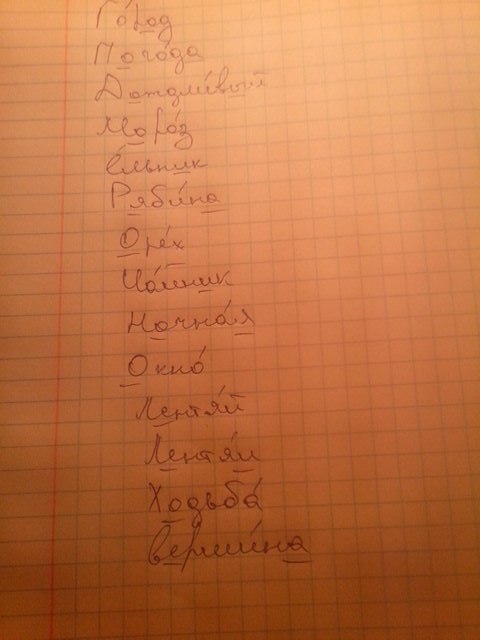 Го́род
Пого́да
Дождли́вый
Моро́з
Е́льник
Ряби́на
Оре́х
Ча́йник
Ночна́я
Окно́
Лентя́й
Лентя́и
Ходьба́
Верши́на